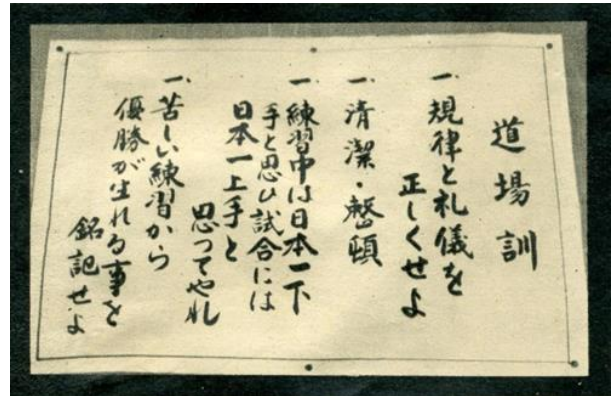 道場訓
一、規律と礼儀を
正しくせよ
一、清潔・整頓
一、練習中は日本一下
手と思ひ試合には
日本一上手と
思ってやれ
一、苦しい練習から
優勝が生れる事を
銘記せよ